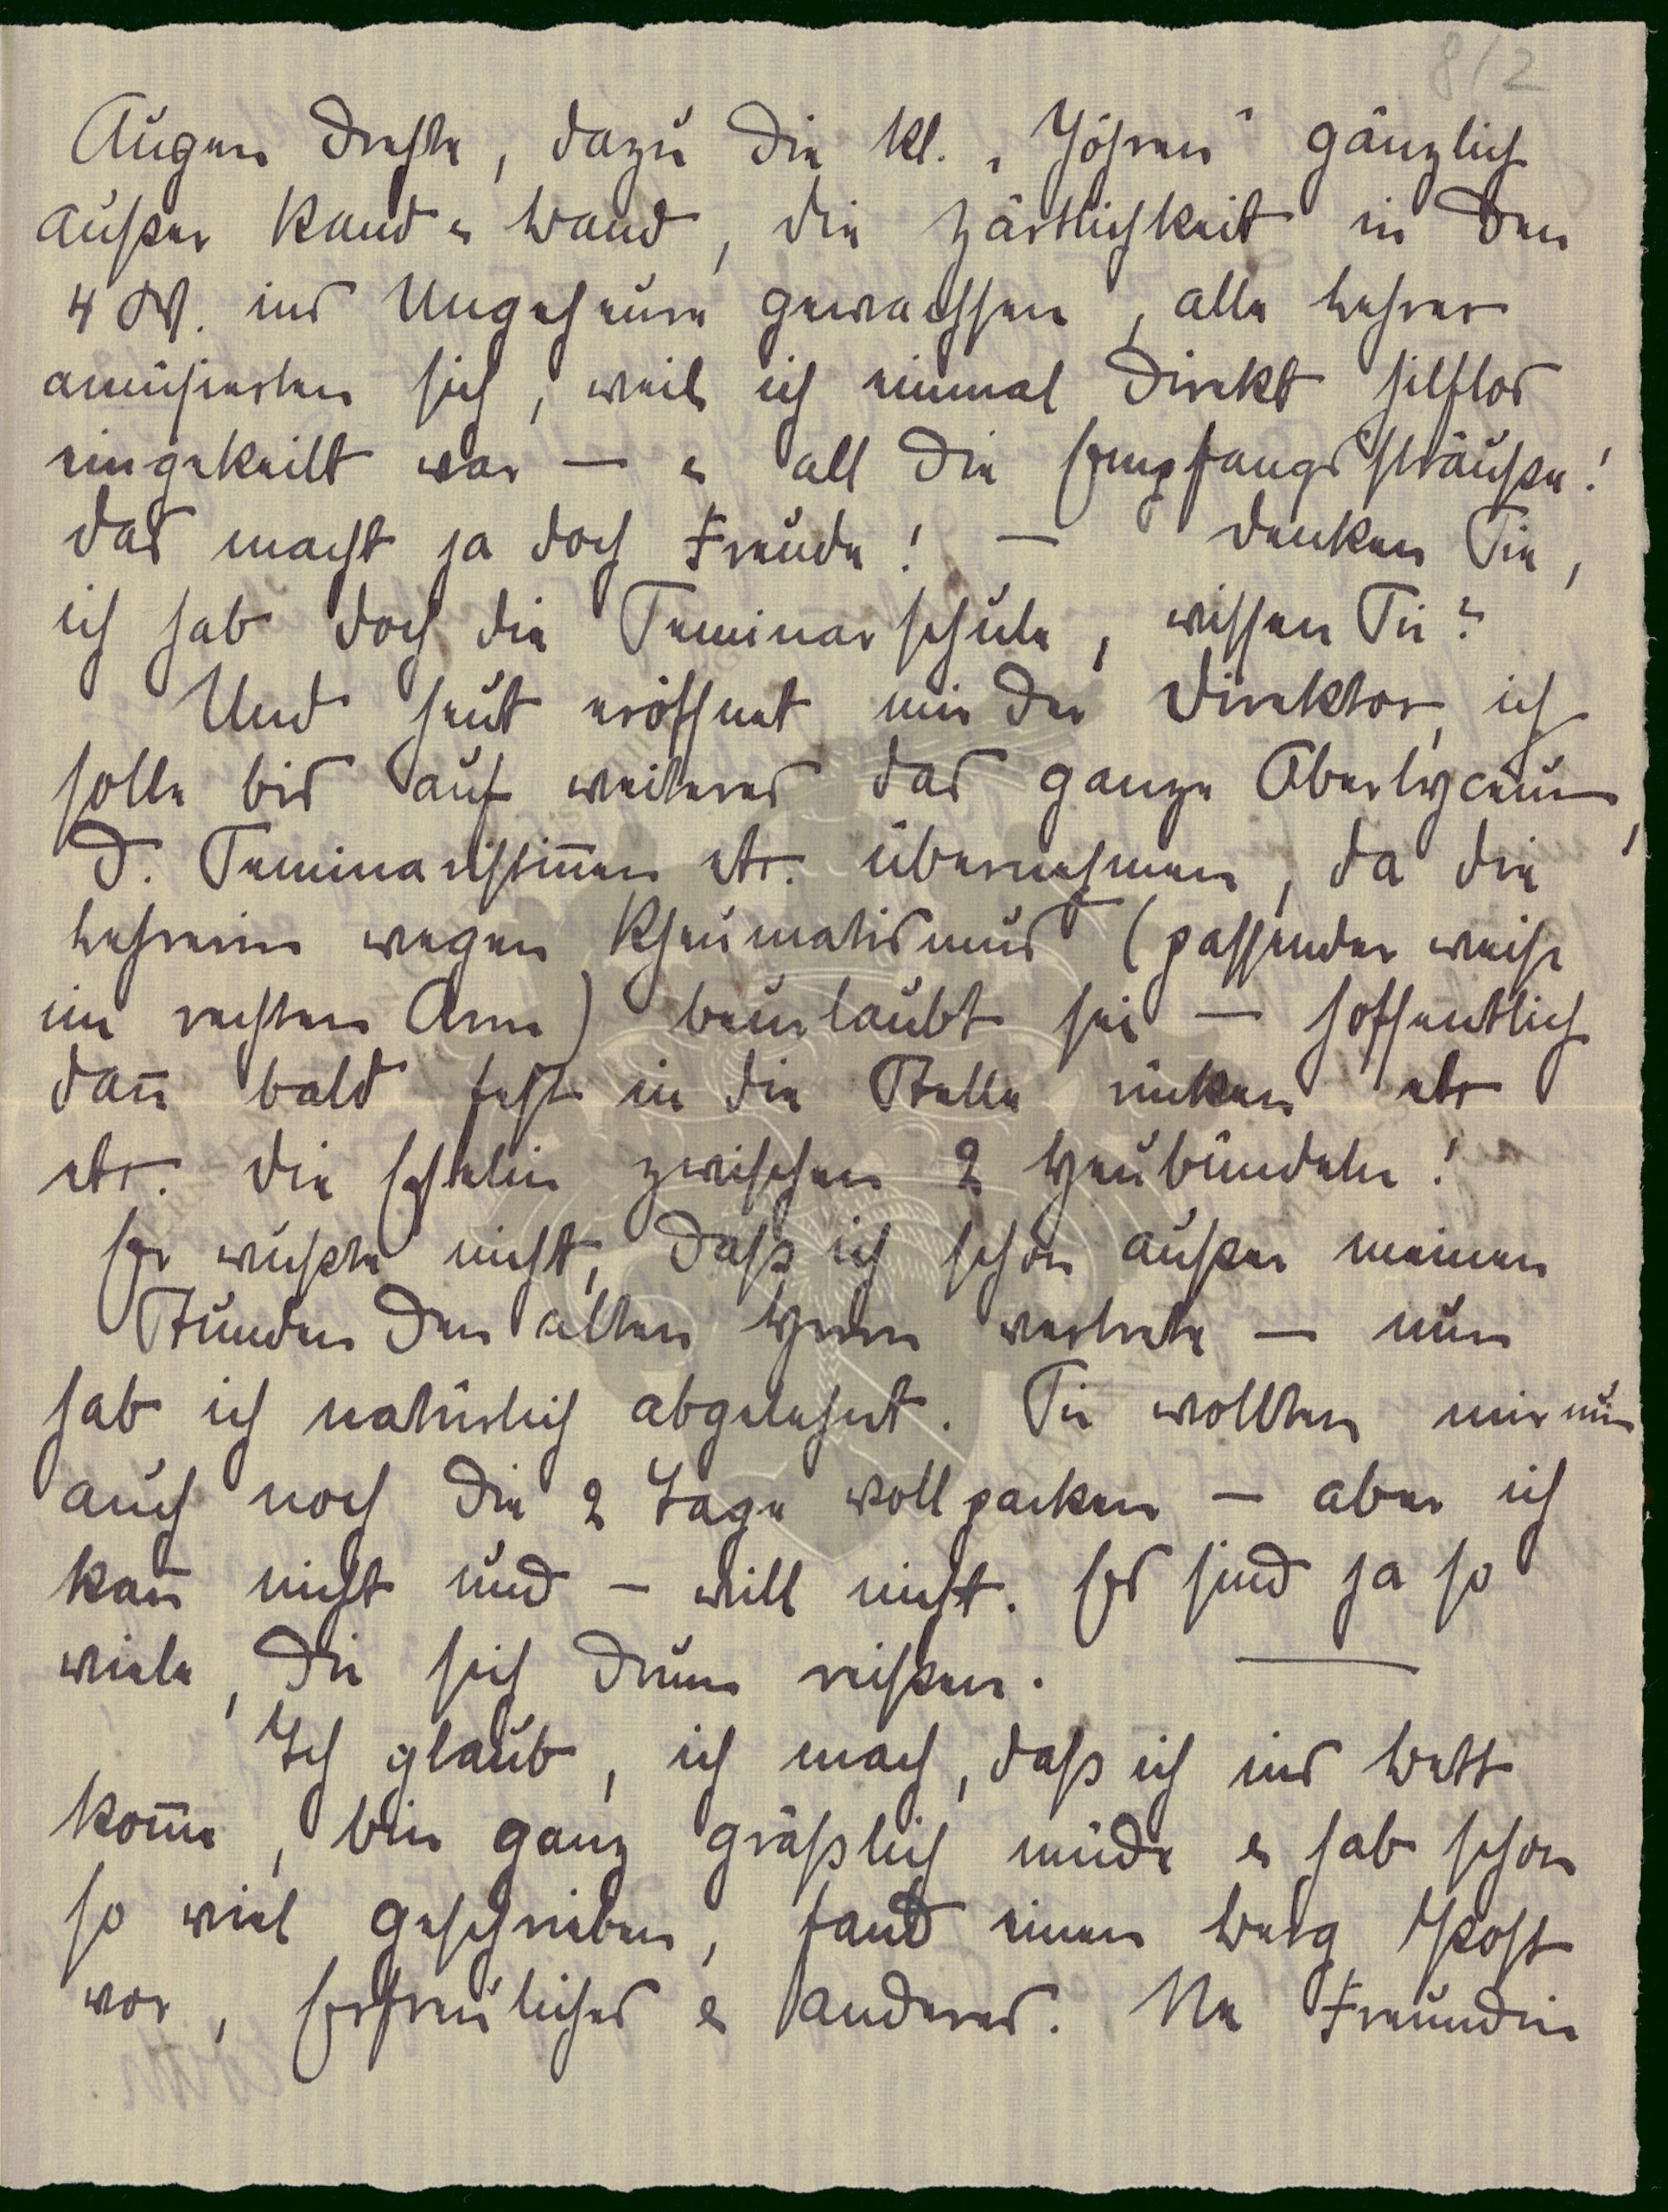 8/2
Augen drehte, dazu die kl. „Jöhren“ gänzlich
außer Rand u Band, die Zärtlichkeit in den
4 W. ins Ungeheure gewachsen, alle Lehrer
amüsierten sich, weil ich einmal direkt hilflos
eingekeilt war — u all die Empfangssträuße!
das macht ja doch Freude! — Denken Sie,
ich hab doch die Seminarschule, wissen Sie?
Und heut eröffnet mir der Direktor, ich
solle bis auf weiteres das ganze Oberlyceum,
d. Seminaristin̄en etc. übernehmen, da die
Lehrerin wegen Rheumatismus (passender weise
im rechten Arm) beurlaubt sei — hoffentlich
dan̄ bald fest in die Stelle rücken etc
etc. die Eselin zwischen 2 Heubündeln!
Er wußte nicht, daß ich schon außer meinen
Stunden den alten Herrn vertrete — nun
hab ich natürlich abgelehnt. Sie wollten mir nun
auch noch die 2 Tage voll packen — aber ich
kan̄ nicht und — will nicht. Es sind ja so
viele, die sich drum reißen. —
Ich glaub, ich mach, daß ich ins Bett
kom̄e, bin ganz gräßlich müde u hab schon
so viel geschrieben, fand einen Berg Post
vor, Erfreuliches u anderes. Ne Freundin